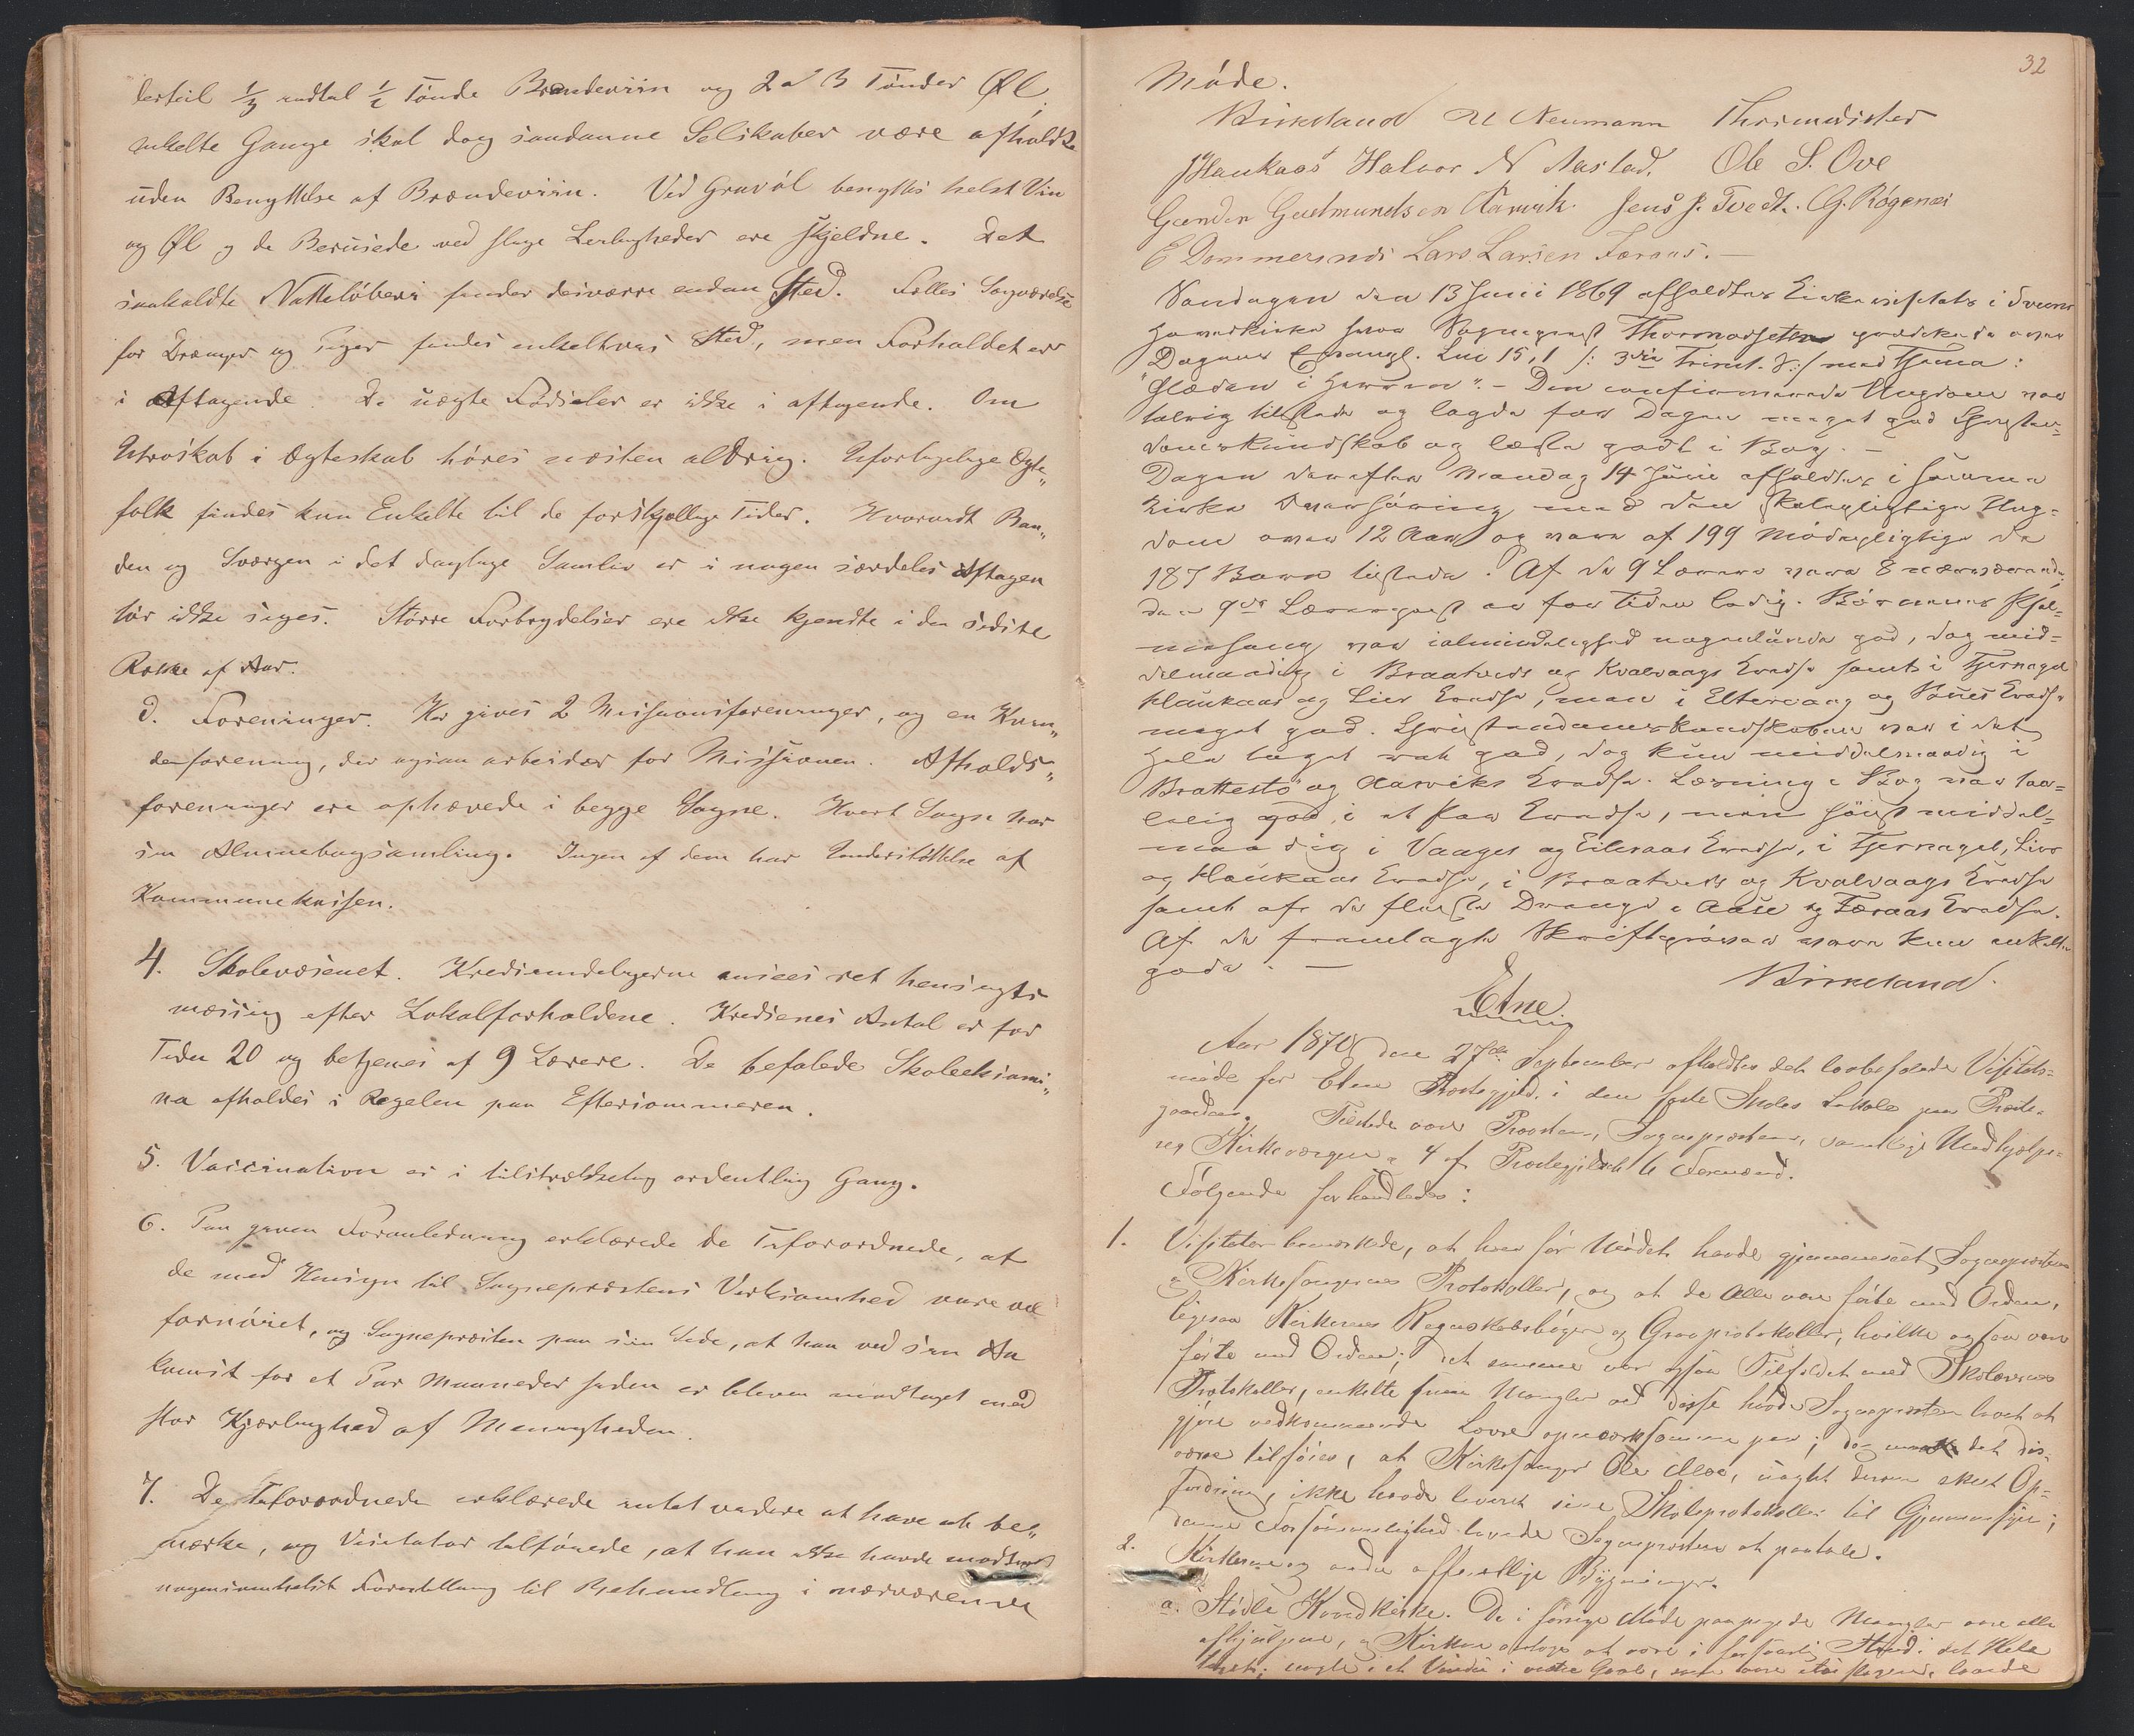 dertil 1/3 indtil 1/2 Tønde Brændeviin og 2 a 3 Tønder Øl
enkelte Gange skal dog saadanne Selskaber være afholdte
uden Benyttelse af Brændeviin. Ved Gravøl benyttes helst Viin
og Øl og de Berusede ved slige Leiligheder ere sjeldne. Det
saakaldte Natteløberi finder desværre endnu Sted. Fælles Sogværelse
for Drenge og Piger findes enkeltviis Sted, men Forholdet er
i Aftagende. De uægte Fødsler er ikke i aftagende. Om
Utroskab i Ægteskab høres næsten aldrig. Uforligelige Ægte„
folk findes kun Enkelte til de forskjellige Tider. Hvorvidt Ban„
den og Sværgen i det daglige Samliv er i nogen særdeles Aftagen
tør ikke siges. Større Forbrydelser ere ikke kjendte i den sidste
Række af Aar.
d. Foreninger. Her gives 2 Missionsforeninger, og en Kvin„
deforening, der ogsaa arbeider for Missionen. Afholds„
foreninger ere ophævede i begge Sogne. Hvert Sogn har
sin Almuebogsamling. Ingen af dem har Understøttelse af
Kommunekassen.
4. Skolevæsenet. Kredsinddelingerne ansees ret hensigts
mæssig efter Lokalforholdene. Kredsenes Antal er for
Tiden 20 og betjenes af 9 Lærere. De befalede Skoleeksami„
na afholdes i Regelen paa Eftersommeren.
5. Vaccination er i tilstrækkelig ordentlig Gang.
6. Paa given Foranledning erklærede de Tilforordnede, at
de med Hensyn til Sognepræstens Virksomhed vare vel
fornøiet, og Sognepræsten paa sin Side, at han ved sin An
komst for et Par Maaneder siden er bleven modtaget med
stor Kjærlighed af Menigheden.
7. De Tilforordnede erklærede intet videre at have at be„
mærke, og Visitator tilføiede, at han ikke havde modtaget
nogensomhelst Forestilling til Behandling i nærværende
32
Møde.
Birkeland Neumann Thormodsæter
J Haukaas Halvor N Aastad. Ole S. Ove
Gunder Gudmundsen Aarvik. Jens J. Tvedt. G. Røgenæs
E Dommersnæs Lars Larsen Færaas. —
Søndagen den 13 Juni 1869 afholdtes Kirkevisitats i Sveens
Hovedkirke hvor Sognepræst Thormodsæter prædikede over
Dagens Evangl. Luc 15,1 /: 3die Trinit. S:/ med Thema:
"Glæden i Herren". — Den confirmerede Ungdom var
talrig tilstede og lagde for Dagen meget god Christen=
domskundskab og læste godt i Bog. —
Dagen derefter Mandag 14 Juni afholdtes i samme
Kirke Overhøring med den skolepligtige Ung=
dom over 12 Aar og vare af 199 Mødepligtige de
187 Børn tilstede. Af de 9 Lærere vare 8 nærværende;
den 9de Lærerpost er for Tiden ledig. Børnenes Psal=
mesang var i almindelighed nogenlunde god, dog mid=
delmaadig i Braatveds og Kvalvaags Kredse samt i Tjernagel
Haukaas og Lier Kredse, men i Eltervaag og Bues Kredse
meget god. Christendomskundskaben var i det
hele taget ret god, dog kun middelmaadig i
Brattestø og Aarviks Kredse. Læsning i Bog var taa=
lelig god i et Par Kredse, men høist middel=
maadig i Vaages og Eilevaas Kredse, i Tjernagel, Lier
og Haukaas Kredse, i Braatveds og Kvalvaags Kredse
samt af de fleste Drenge i Aase og Færaas Kredse.
Af de fremlagte Skriftprøver vare kun enkelte
gode. —
Birkeland.
Etne
Aar 1870 den 27de September afholdtes det lovbefalede Visitats=
møde for Etne Præstegjeld i den faste Skoles Lokale paa Præste=
gaarden. Tilstede vare Provsten, Sognepræsten, samtlige Medhjælpe=
re, Kirkeværger & 4 af Præstegjeldets 6 Formænd.
Følgende forhandledes:
1. Visitator bemærkede, at han før Mødet havde gjennemseet Sognepræstens
& Kirkesangernes Protokoller, og at de alle vare førte med Orden,
ligesaa Kirkernes Regnskabsbøger og Gravprotokoller, hvilke ogsaa vare
førte med Orden; det samme var ogsaa Tilfældet med Skolelærernes
Protokoller, enkelte smaa Mangler ved disse havde Sognepræsten lovet at
gjøre vedkommende Lærere opmærksomme paa; dog maatte det des=
værre tilføies, at Kirkesanger Ole Moe, uagtet derom skeet Op=
fordring, ikke havde leveret sine Skoleprotokoller til Gjennemsyn;
denne Forsømmelighed lovede Sognepræsten at paatale.
2. Kirkerne og andre offentlige Bygninger.
a. Støle Hovedkirke. De i forrige Møde paapegede Mangler vare alle
afhjulpne, & Kirken antoges at være i forsvarlig Stand i det Hele
taget; nogle i et Vindu i vestre Gavl, som vare itu slagne, lovede